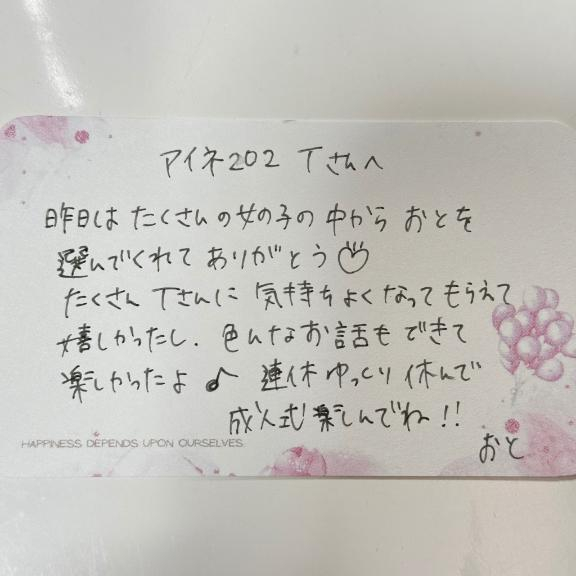 アイネ202 Tさんへ
昨日は たくさんの女の子の中から おとを
選んでくれて ありがとう♡
たくさん Tさんに 気持ちよくなってもらえて
嬉しかったし、色んなお話もできて
楽しかったよ♪ 連休ゆっくり休んで
成人式楽しんでね!!
HAPPINESS DEPENDS UPON OURSELVES.
おと